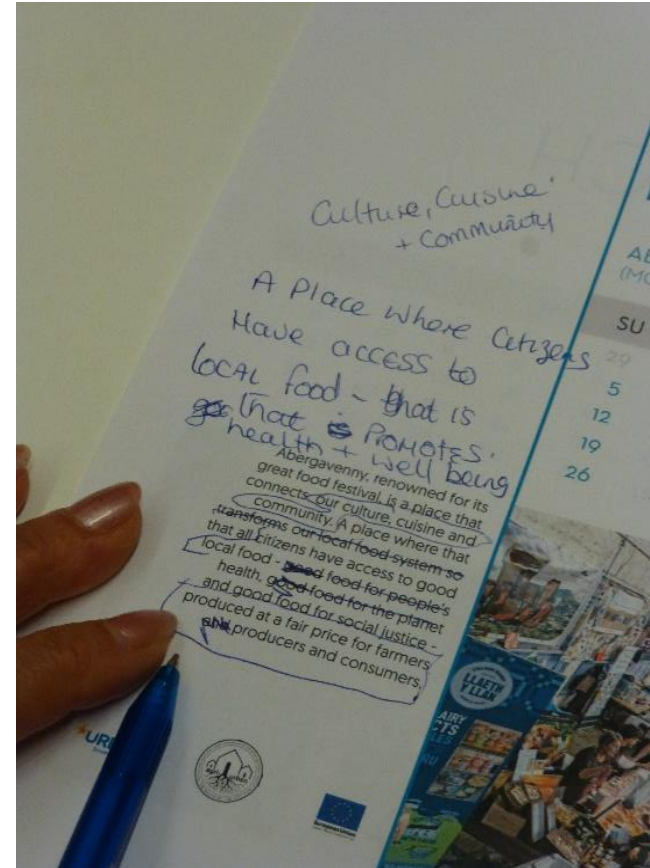 Culture, Cuisine
+ Community
A Place where Citizens
Have access to
local food - that is
that is PROMOTES.
health + well being
Abergavenny, renowned for its
great food festival, is a place that
connects our culture, cuisine and
community. A place where that
transforms our local food system so
that all citizens have access to good
local food - good food for people's
health, good food for the planet
and good food for social justice -
produced at a fair price for farmers,
producers and consumers.
SU
29
5
12
19
26
LLAETH
Y LLAN
European Union